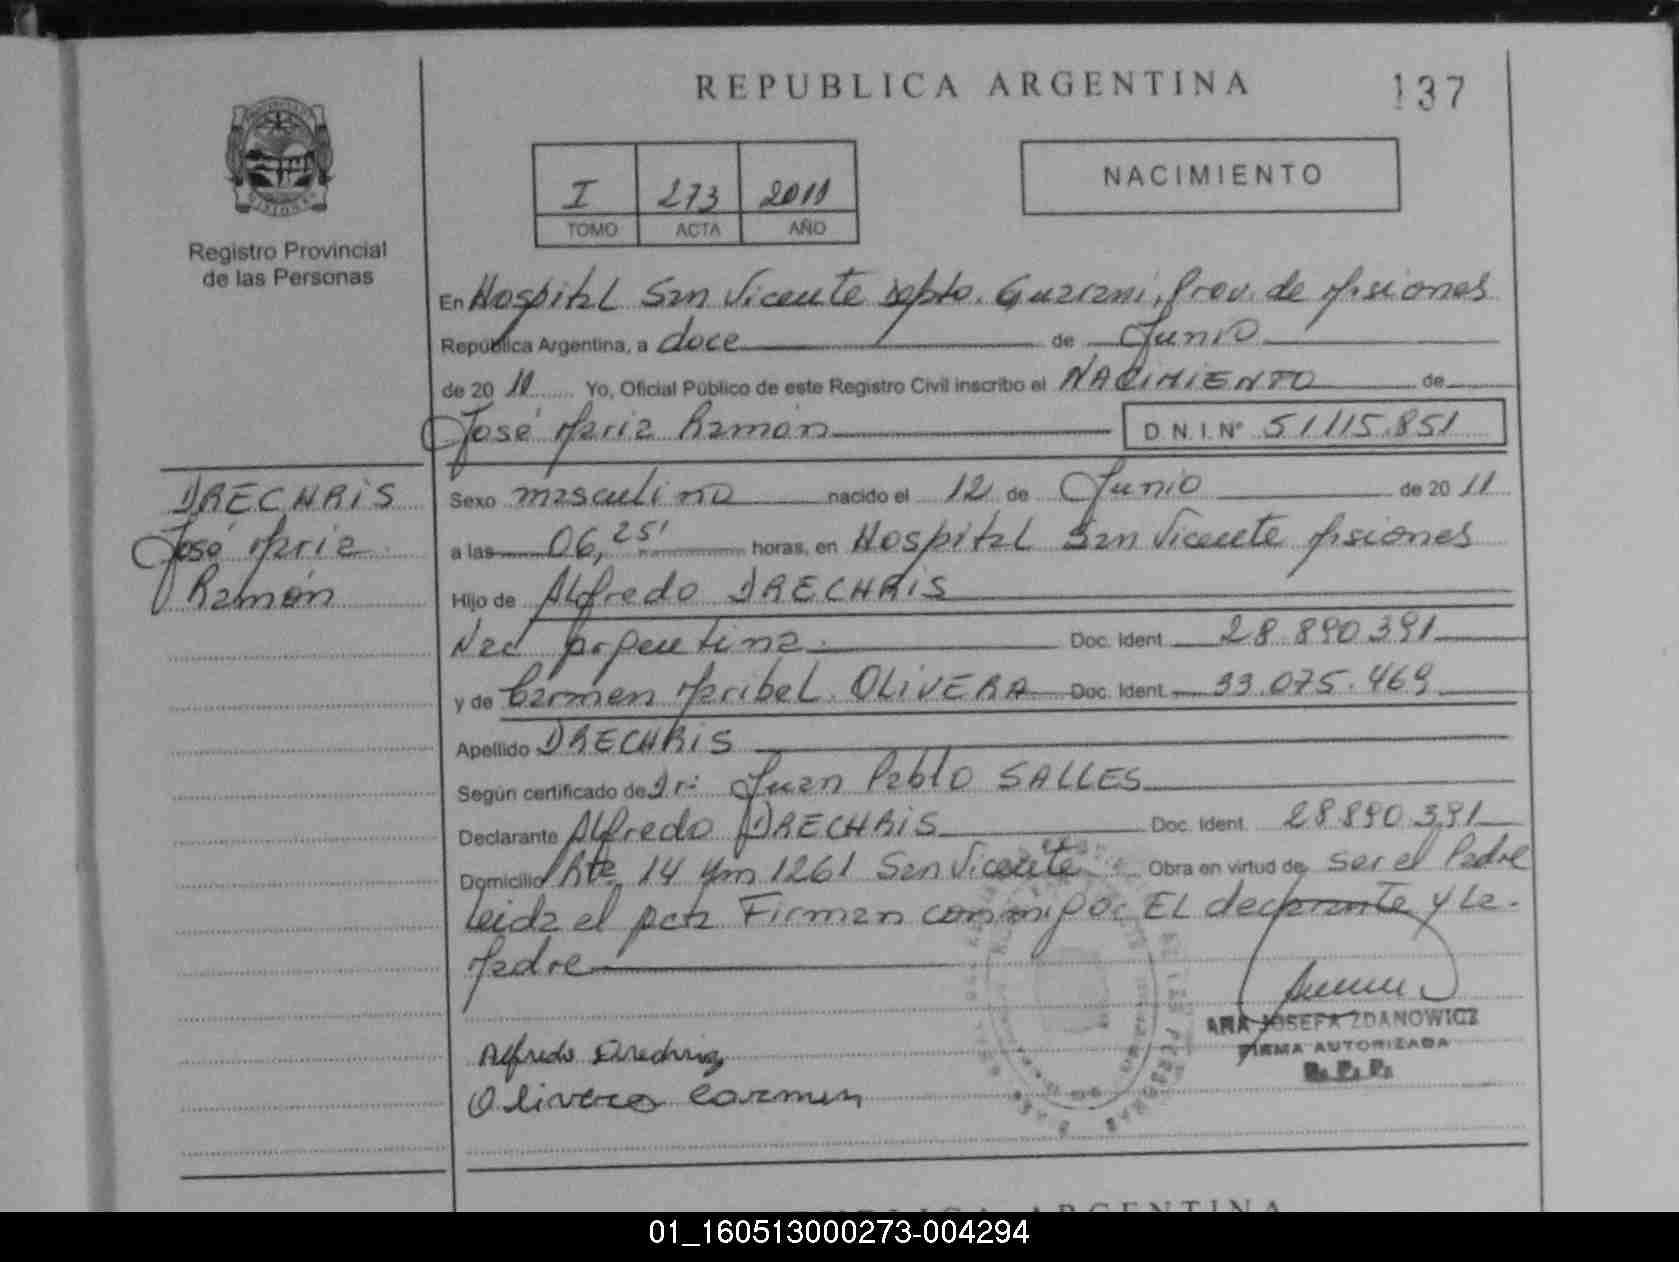 REPUBLICA ARGENTINA
137
I 273 2011
TOMO ACTA AÑO
NACIMIENTO
Registro Provincial
de las Personas
En Hospital San Vicente Depto. Guarani, Prov. de Misiones
República Argentina, a doce de Junio
de 20 11 Yo, Oficial Público de este Registro Civil inscribo el NACIMIENTO de
José Maria Ramón D.N.I.Nº 51.115.851
DRECHRIS
José Maria
Ramón
Sexo masculino nacido el 12 de Junio de 20 11
a las 06,25' horas, en Hospital San Vicente Misiones
Hijo de Alfredo DRECHRIS
Nac Argentina. Doc. Ident. 28.890.391
y de Carmen Maribel OLIVERA Doc. Ident. 33.075.469
Apellido DRECHRIS
Según certificado de Dr: Juan Pablo SALLES
Declarante Alfredo DRECHRIS Doc. Ident. 28.890.391
Domicilio Rta 14 Km 1261 San Vicente Obra en virtud de ser el Padre
Leida el acta Firman conmigo: EL declarante y La
Madre
ANA JOSEFA ZDANOWICZ
FIRMA AUTORIZADA
R. P. P.
Alfredo Drechris
Olivera Carmen
REPUBLICA ARGENTINA
01_160513000273-004294